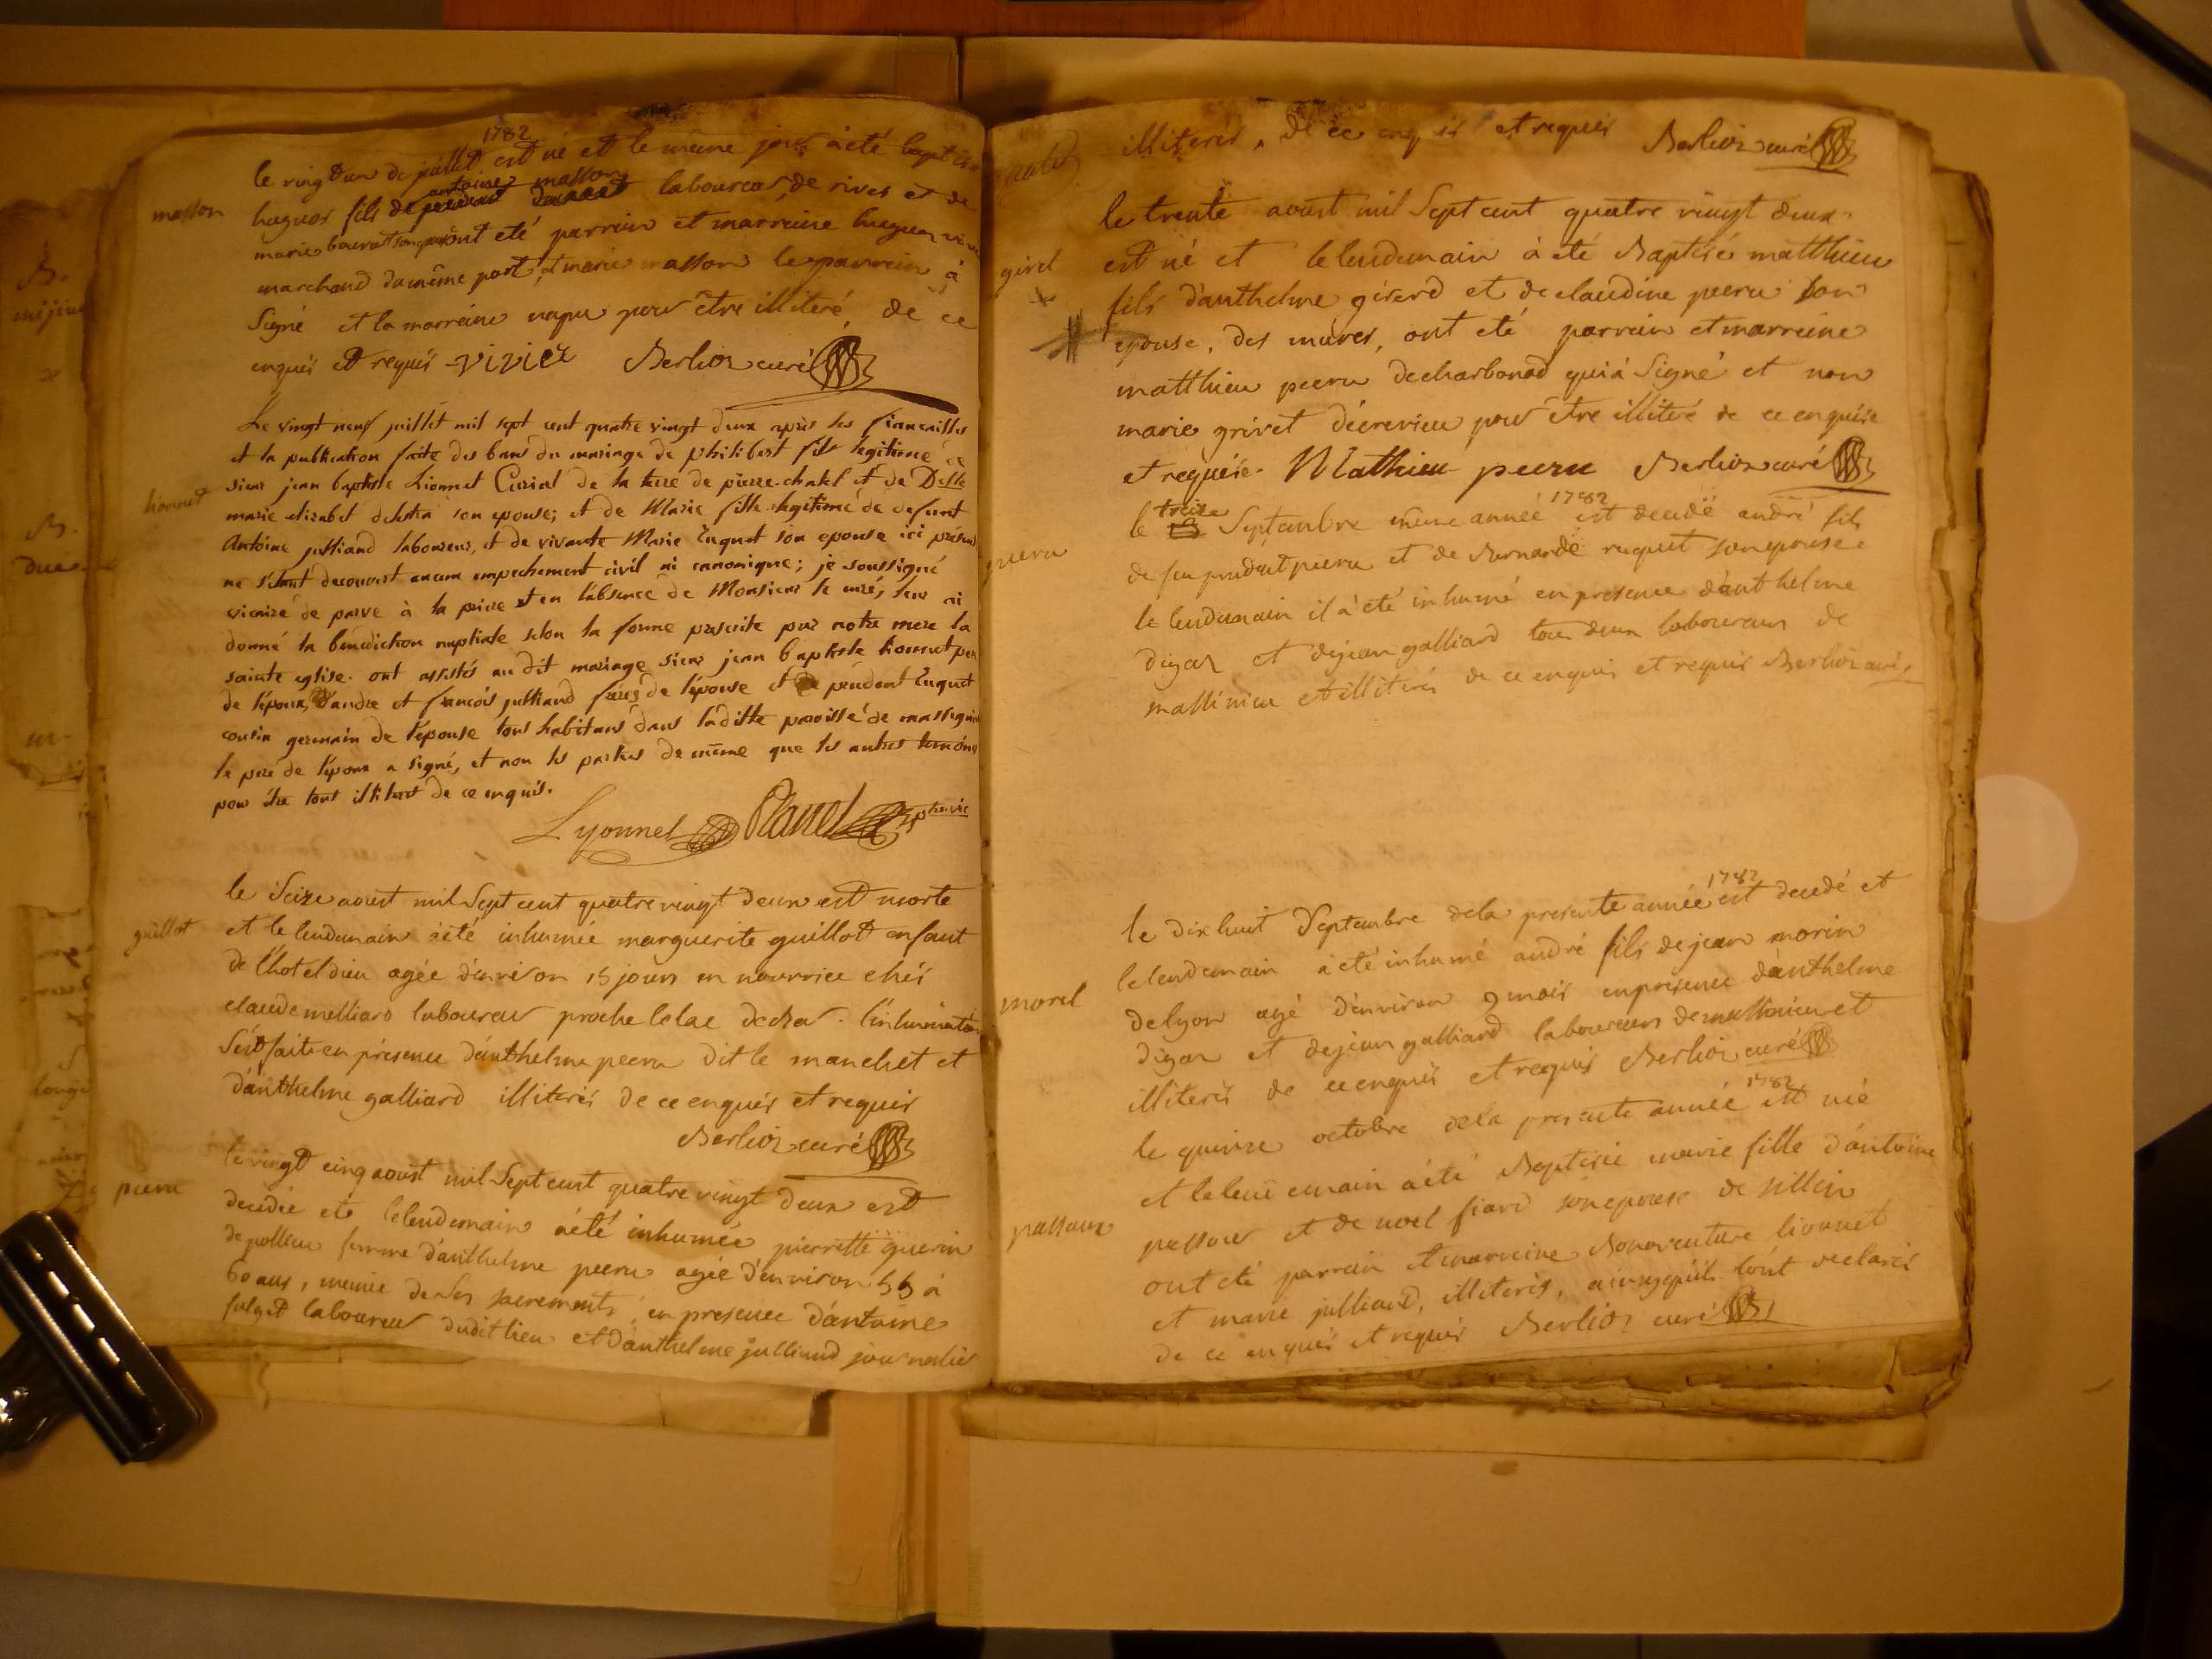 1782
le vingt un de juillet est né et le même jour à été baptisé
masson
hugues fils de antoine masson laboureur de rives et de
marie bourat son epouse ont eté parrein et marreine hugues vivie
marchand du même part, et marie masson le parrein à
Signé et la marreine napu pour être illiteré, de ce
enquis et requis vivier Berlioz curé
Le vingt neuf juillet mil sept cent quatre vingt deux après les fiancailles
et la publication faite des bans du mariage de philibert fils légitime de
sieur jean baptiste Lionnet Curial de la terre de pierre-chatel et de Delle
lionnet
marie elizabet delestra son epouse; et de Marie fille légitime de defunt
Antoine julliand laboureur, et de vivante Marie Cuquet son epouse ici présens
ne s'étant decouvert aucun empechement civil ni canonique; je soussigné
vicaire de parve à la priere et en l'absence de Monsieur le curé, leur ai
donné la bénédiction nuptiale selon la forme prescrite par notre mere la
sainte eglise. ont assistés au dit mariage sieur jean baptiste lionnet pere
de l'epoux, d'andré et francois julliand freres de l'épouse et de prudent Cuquet
cousin germain de l'epouse tous habitans dans la ditte paroisse de massignieu
le pere de l'époux a signé, et non les parties de même que les autres temoins
pour être tous illiterés de ce enquis.
Lyonnet Planet ptre vic
le Seize aoust mil Sept cent quatre vingt deux est morte
guillot
et le lendemain à été inhumée marguerite guillot enfant
de l'hotel dieu agée d'environ 15 jours en nourrice chés
claude milliard laboureur proche le lac de bar. l'inhumation
S'est faite en présence d'anthelme peeru dit le manchet et
d'anthelme galliard illiterés de ce enquis et requis
Berlioz curé
le vingt cinq aoust mil Sept cent quatre vingt deux est
peeru
decedée et le lendemain àété inhumée pierrette guerin
de pollieu femme d'anthelme peeru agée d'environ 55 à
60 ans, munie de Ses sacrements en presence d'antoine
fulget laboureur dudit lieu et d'anthelme julliand journalier
illiterés, de ce enquis et requis Berlioz curé
le trente aoust mil Sept cent quatre vingt deux
girel
est né et le lendemain à eté Baptisé matthieu
fils d'anthelme girerd et de claudine peeru Son
epouse, des mures, ont eté parrein et marreine
matthieu peeru de charbonod qui à Signé et non
marie grivet décrevieu pour être illiteré de ce enquise
et requise. Mathieu peeru Berlioz curé
le treize Septembre même année 1782 est decedé andré fils
peeru
de feu prudent peeru et de Bernarde ruquet son epouse
le lendemain il à été inhumé en presence d'anthelme
digar et dejean galliard tous deux laboureurs de
massinieu et illiterés de ce enquis et requis Berlioz curé
1782
le dix huit Septembre dela presente année est decedé et
le lendemain à eté inhumé andré fils de jean morin
morel
delyon agé d'environ 9 mois en presence d'anthelme
digar et dejean galliard laboureurs de massinieu et
illiterés de ce enquis et requis Berlioz curé
1782
le quinze octobre dela presente année est née
et le lendemain àété Baptisée marie fille d'antoine
passoux
passour et de noel fiard son epouse de sillin
ont eté parrein et marreine Bonaventure lionnet
et marie julliand, illiterés, ainsy qu'ils l'ont declarés
de ce enquis et requis Berlioz curé